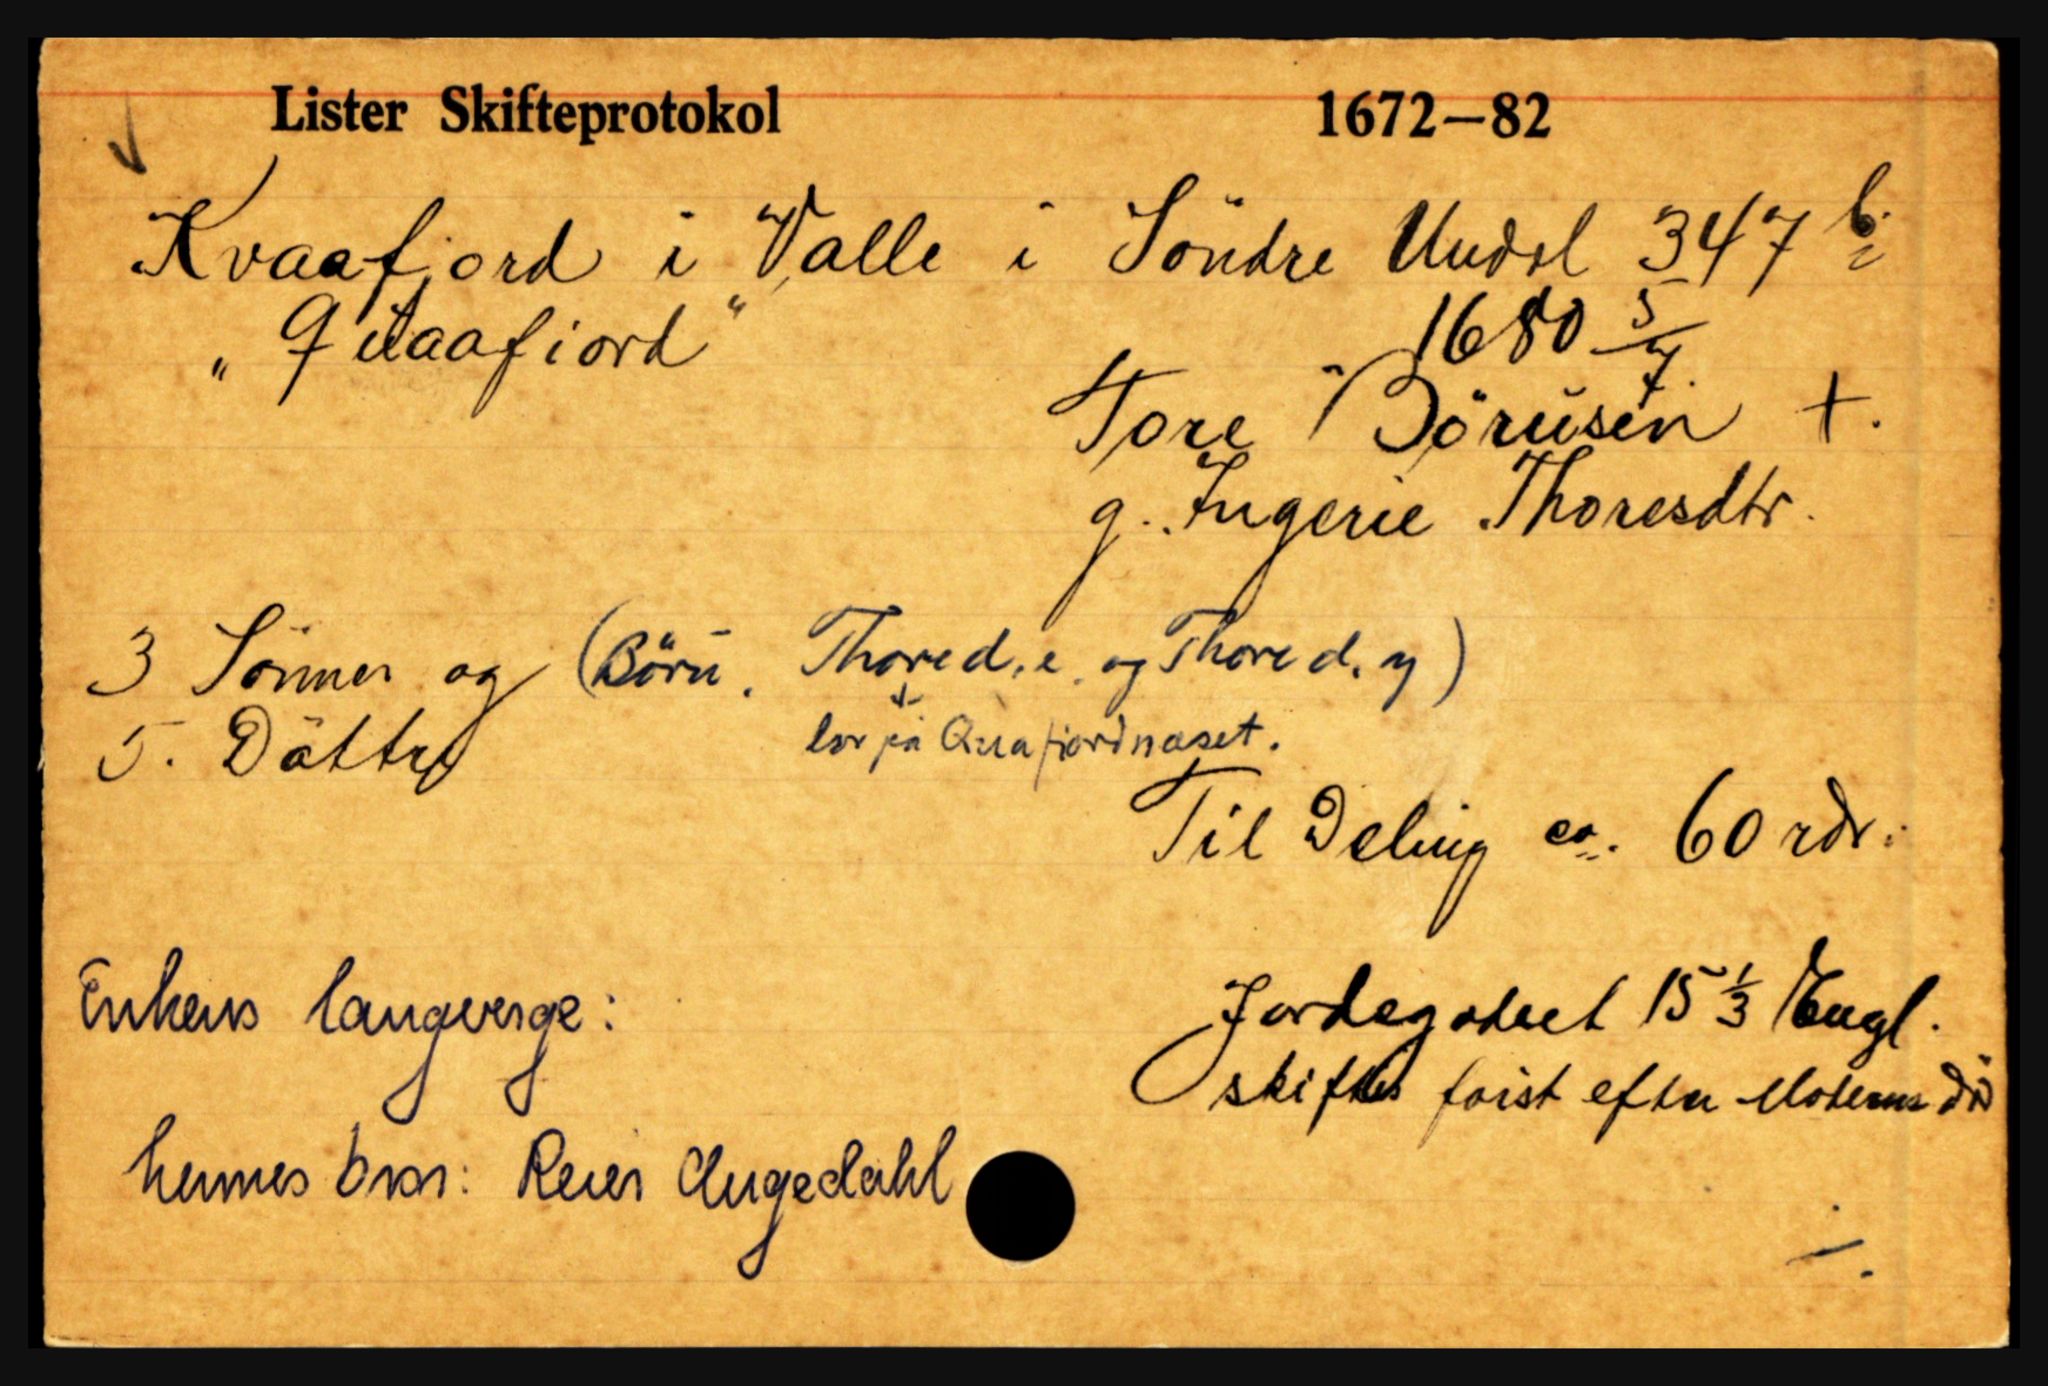 Lister Skifteprotokol 1672–82
Kvaafjord i Valle i Söndre Undal 347 b.
„Qvaafiord“ 1680 5/7.
Tore Börüsen +.
g. Ingerie Thoresdtr.
3 Sönner og (Börü, Thore d. e. og Thore d. y)
5. Döttre bor på Qvafiordnæset.
Til Deling ca. 60 rdr.
Enkens laugverge: Jordegodset 15 1/3 Engl.
skiftes först efter Moderens död
hennes bror: Reier Augedahl